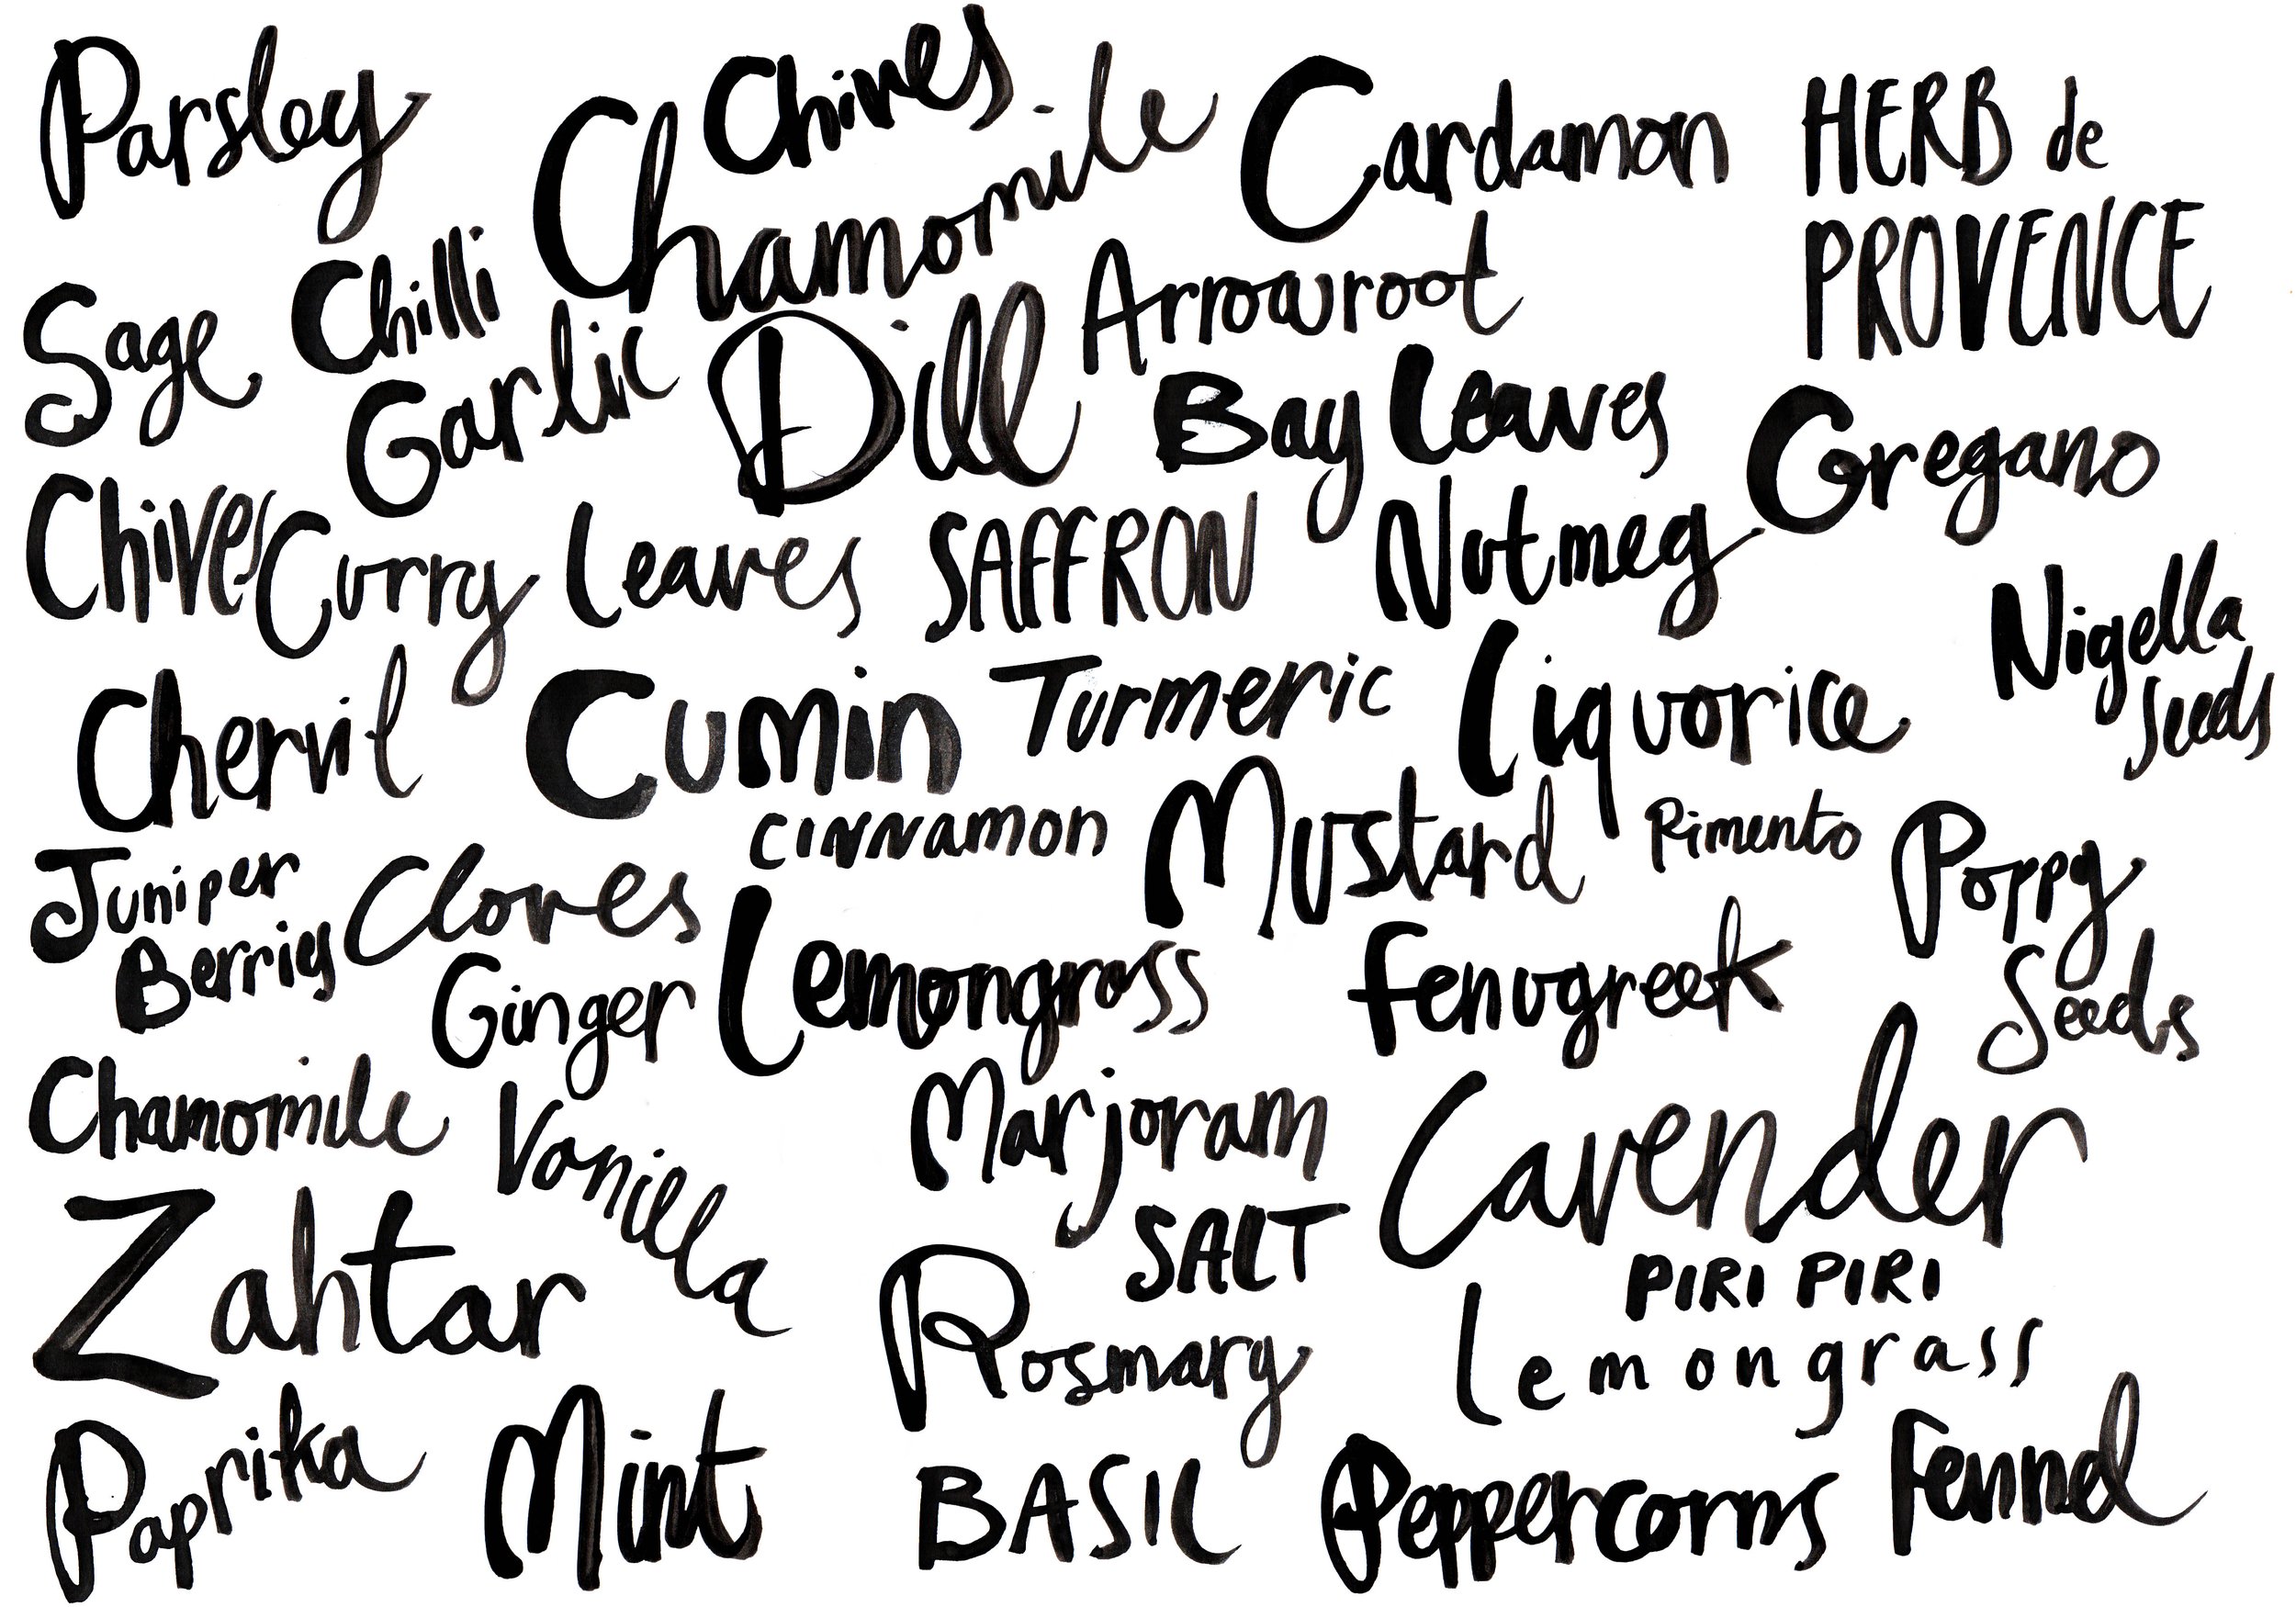 Parsley
Chives
Chamomile
Cardamon
HERB de
PROVENCE
Sage
Chilli
Garlic
Dill
Arrowroot
Bay Leaves
Oregano
Chives
Curry Leaves
SAFFRON
Nutmeg
Nigella
Seeds
Chervil
Cumin
Turmeric
Liquorice
Cinnamon
Mustard
Pimento
Poppy
Seeds
Juniper
Berries
Cloves
Ginger
Lemongrass
Fenugreek
Chamomile
Vanilla
Marjoram
Lavender
Zahtar
SALT
Rosmary
PIRI PIRI
Lemongrass
Paprika
Mint
BASIL
Peppercorns
Fennel